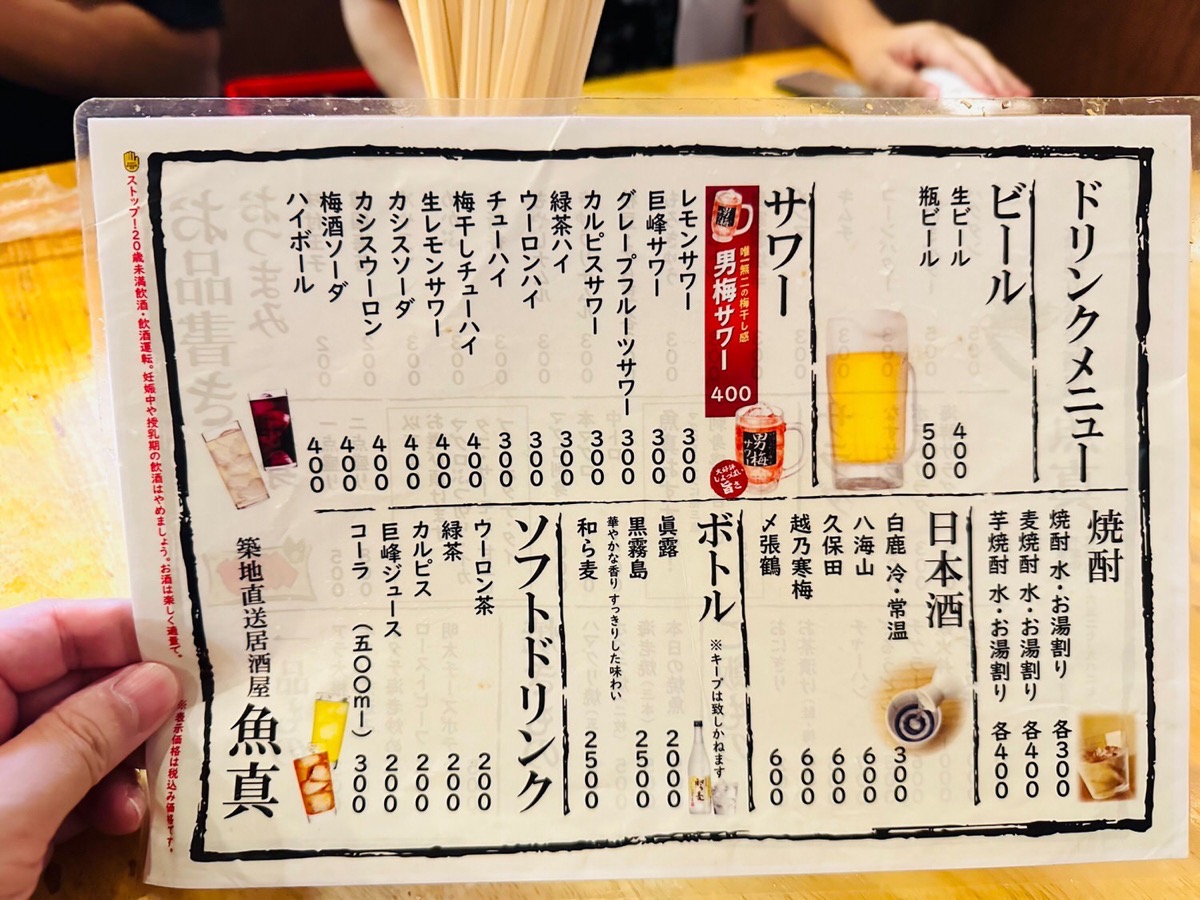 ドリンクメニュー
ビール
生ビール 400
瓶ビール 500
サワー
唯一無二の梅干し感
男梅サワー 400
男梅サワー
大好評 しょっぱい 旨さ
レモンサワー 300
巨峰サワー 300
グレープフルーツサワー 300
カルピスサワー 300
緑茶ハイ 300
ウーロンハイ 300
チューハイ 300
梅干しチューハイ 400
生レモンサワー 400
カシスソーダ 400
カシスウーロン 400
梅酒ソーダ 400
ハイボール 400
焼酎
焼酎 水・お湯割り 各300
麦焼酎 水・お湯割り 各400
芋焼酎 水・お湯割り 各400
日本酒
白鹿 冷・常温 300
八海山 600
久保田 600
越乃寒梅 600
〆張鶴 600
ボトル ※キープは致しかねます
眞露 2000
黒霧島 2500
華やかな香り すっきりした味わい
和ら麦 2500
ソフトドリンク
ウーロン茶 200
緑茶 200
カルピス 200
巨峰ジュース 200
コーラ (五〇〇ml) 300
築地直送居酒屋 魚真
ストップ!20歳未満飲酒・飲酒運転。妊娠中や授乳期の飲酒はやめましょう。お酒は楽しく適量で。
※表示価格は税込み価格です。